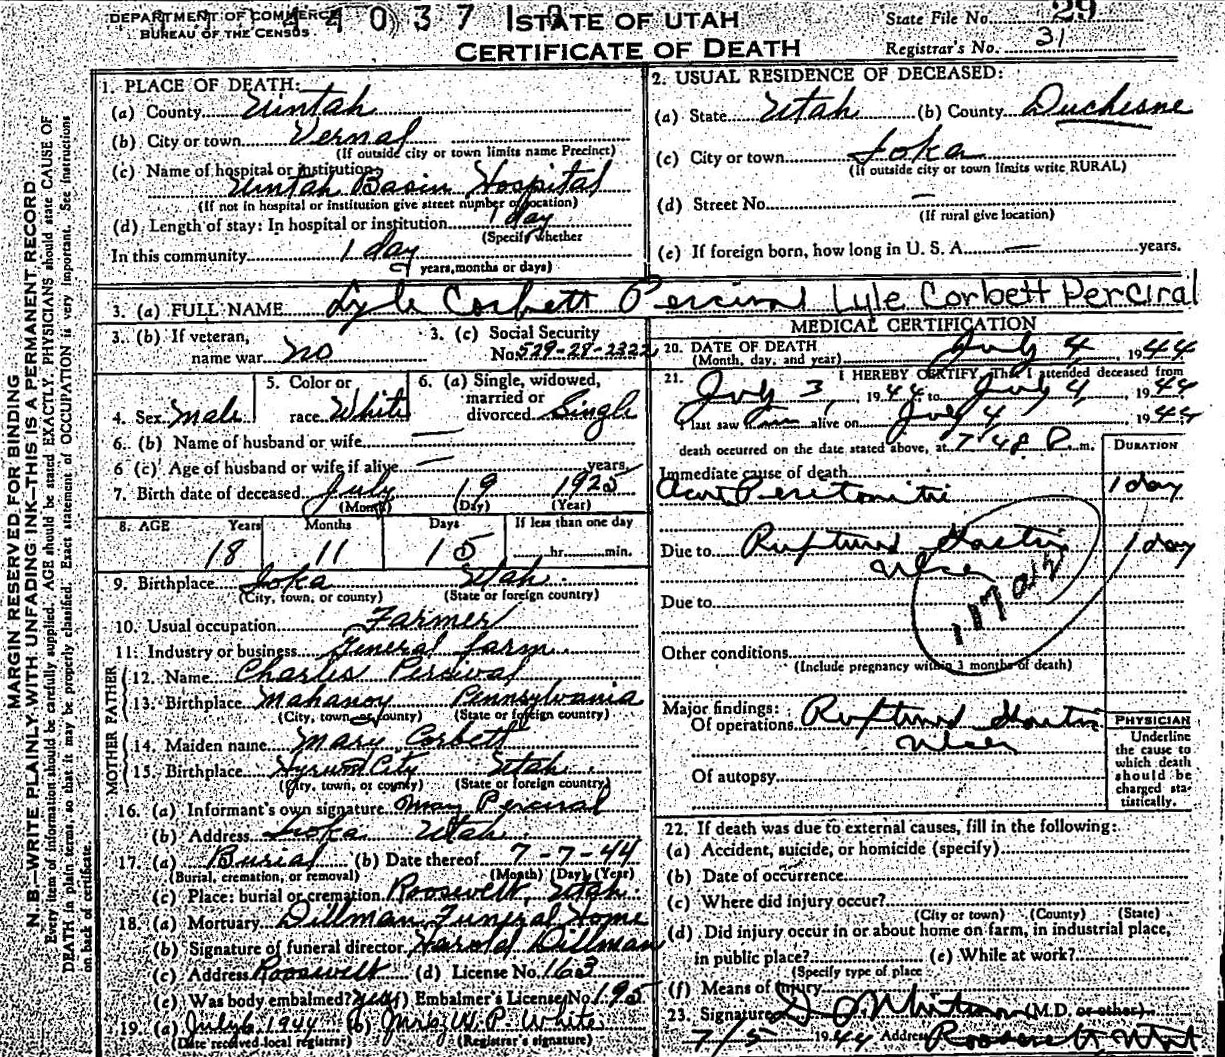 DEPARTMENT OF COMMERCE
BUREAU OF THE CENSUS
STATE OF UTAH
CERTIFICATE OF DEATH
State File No. 29
Registrar's No. 31
MARGIN RESERVED FOR BINDING
N. B.—WRITE PLAINLY WITH UNFADING INK—THIS IS A PERMANENT RECORD
Every item of information should be carefully supplied. AGE should be stated EXACTLY. PHYSICIANS should state CAUSE OF
DEATH in plain terms, so that it may be properly classified. Exact statement of OCCUPATION is very important. See instructions
on back of certificate.
1. PLACE OF DEATH:
(a) County Uintah
(b) City or town Vernal
(If outside city or town limits name Precinct)
(c) Name of hospital or institution:
Uintah Basin Hospital
(If not in hospital or institution give street number or location)
(d) Length of stay: In hospital or institution 1 day
(Specify whether
In this community 1 day
years, months or days)
2. USUAL RESIDENCE OF DECEASED:
(a) State Utah (b) County Duchesne
(c) City or town Ioka
(If outside city or town limits write RURAL)
(d) Street No. —
(If rural give location)
(e) If foreign born, how long in U. S. A. — years.
3. (a) FULL NAME Lyle Corbett Percival Lyle Corbett Perciral
3. (b) If veteran, name war no
3. (c) Social Security No. 529-29-2322
4. Sex Male
5. Color or race White
6. (a) Single, widowed, married or divorced Single
6. (b) Name of husband or wife —
6 (c) Age of husband or wife if alive — years.
7. Birth date of deceased July 19 1925
(Month) (Day) (Year)
8. AGE Years Months Days If less than one day
18 11 15 hr. min.
9. Birthplace Ioka Utah
(City, town, or county) (State or foreign country)
10. Usual occupation Farmer
11. Industry or business General farm
FATHER
12. Name Charles Percival
13. Birthplace Mahanoy Pennsylvania
(City, town, or county) (State or foreign country)
MOTHER
14. Maiden name Mary Corbett
15. Birthplace Hyrum City Utah
(City, town, or county) (State or foreign country)
16. (a) Informant's own signature May Percival
(b) Address Ioka Utah
17. (a) Burial (b) Date thereof 7-7-44
(Burial, cremation, or removal) (Month) (Day) (Year)
(c) Place: burial or cremation Roosevelt, Utah
18. (a) Mortuary Dillman Funeral Home
(b) Signature of funeral director Harold Dillman
(c) Address Roosevelt (d) License No. 163
(e) Was body embalmed? yes (f) Embalmer's License No. 195
19. (a) July 6 1944 (b) Mrs. W. P. White
(Date received local registrar) (Registrar's signature)
MEDICAL CERTIFICATION
20. DATE OF DEATH July 4, 1944
(Month, day, and year)
21. I HEREBY CERTIFY, That I attended deceased from
July 3, 1944 to July 4, 1944
I last saw him alive on July 4, 1944
death occurred on the date stated above, at 7:48 P m.
DURATION
Immediate cause of death
Acute Peritonitis 1 day
Due to Ruptured Gastric 1 day
Ulcer
117 a
Due to
Other conditions
(Include pregnancy within 3 months of death)
Major findings:
Of operations Ruptured Gastric
Ulcer
Of autopsy
PHYSICIAN
Underline
the cause to
which death
should be
charged sta-
tistically.
22. If death was due to external causes, fill in the following:
(a) Accident, suicide, or homicide (specify)
(b) Date of occurrence
(c) Where did injury occur?
(City or town) (County) (State)
(d) Did injury occur in or about home on farm, in industrial place,
in public place? (e) While at work?
(Specify type of place
(f) Means of Injury
23. Signature (M.D. or other)
7/5 1944 Address Roosevelt Utah